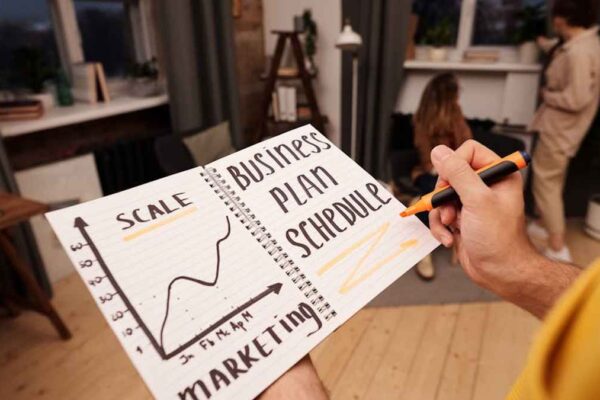 SCALE
Jn Fb Mc Ap M
MARKETING
BUSINESS
PLAN
SCHEDULE